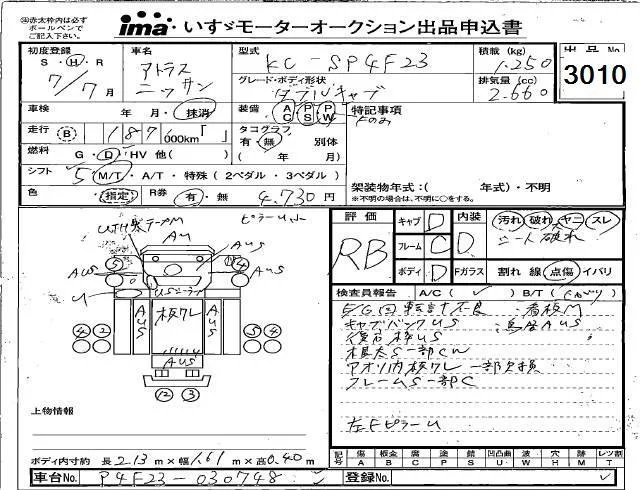 ㊟赤太枠内は必ず
ボールペンで
ご記入下さい。
ima いすゞモーターオークション出品申込書
初度登録 車名 型式 積載(kg) 出品No
S・H・R アトラス KC-SP4F23 1.250 3010
7/7月 ニッサン グレード・ボディ形状 ダブルキャブ 排気量(cc) 2.660
車検 年・月・抹消 装備 AC PS PW 特記事項
走行 B 187,000km「 」 タコグラフ 有・無 別体
燃料 G・D・HV 他( ) ( 年 月)
シフト 5 M/T・A/T・特殊(2ペダル・3ペダル) 架装物年式:( 年式)・不明
※不明の場合は、不明に○をする。
色 指定 R券 有・無 4.730円
評価 RB キャブ D 内装 D 汚れ 破れ ヤニ スレ
シート破れ
フレーム C
ボディ D Fガラス 割れ 線 点傷 イバリ
検査員報告 A/C( ✓ ) B/T( )
EG(回)転計不良 看板M
キャブバックUS 鳥居AUS
根太S一部CW
アオリ内板クレ 一部欠損
フレームS一部C
左FピラーU
ピラーU
AU
AUS
AUS
AUS
板クレ
AUS
AUS
AUS
⑤
④
②
⑤
④
⑫ ③
上物情報
ボディ内寸約 長2.13m×幅1.61m×高0.40m
記号 傷A 板金B 腐C 塗P 錆S 凹凸曲U 波W 穴H 跡M レツ割T
車台No. P4F23-030748 登録No.